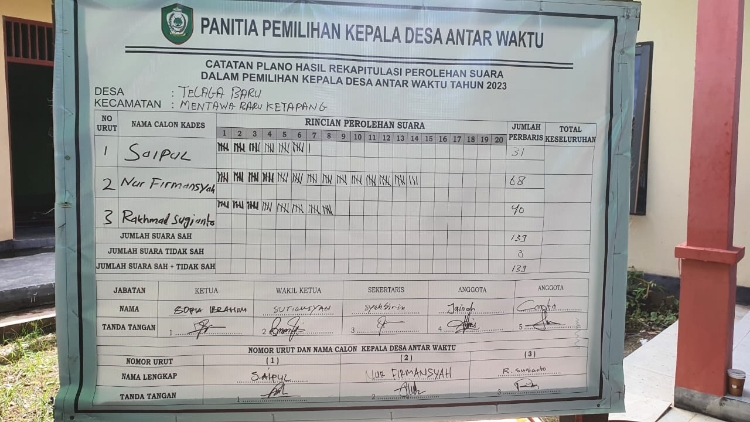 PANITIA PEMILIHAN KEPALA DESA ANTAR WAKTU
CATATAN PLANO HASIL REKAPITULASI PEROLEHAN SUARA
DALAM PEMILIHAN KEPALA DESA ANTAR WAKTU TAHUN 2023
DESA : TELAGA BARU
KECAMATAN : MENTAWA BARU KETAPANG
NO URUT NAMA CALON KADES RINCIAN PEROLEHAN SUARA JUMLAH PERBARIS TOTAL KESELURUHAN
1 2 3 4 5 6 7 8 9 10 11 12 13 14 15 16 17 18 19 20
1 SAIPUL 31
2 Nur Firmansyah 68
3 Rakhmad Sugianto 40
JUMLAH SUARA SAH 139
JUMLAH SUARA TIDAK SAH
JUMLAH SUARA SAH + TIDAK SAH 139
JABATAN KETUA WAKIL KETUA SEKERTARIS ANGGOTA ANGGOTA
NAMA IBRAHIM
TANDA TANGAN 1 2 3 4 5
NOMOR URUT DAN NAMA CALON KEPALA DESA ANTAR WAKTU
NOMOR URUT (1) (2) (3)
NAMA LENGKAP SAIPUL NUR FIRMANSYAH R. Sugianto
TANDA TANGAN 1 2 3